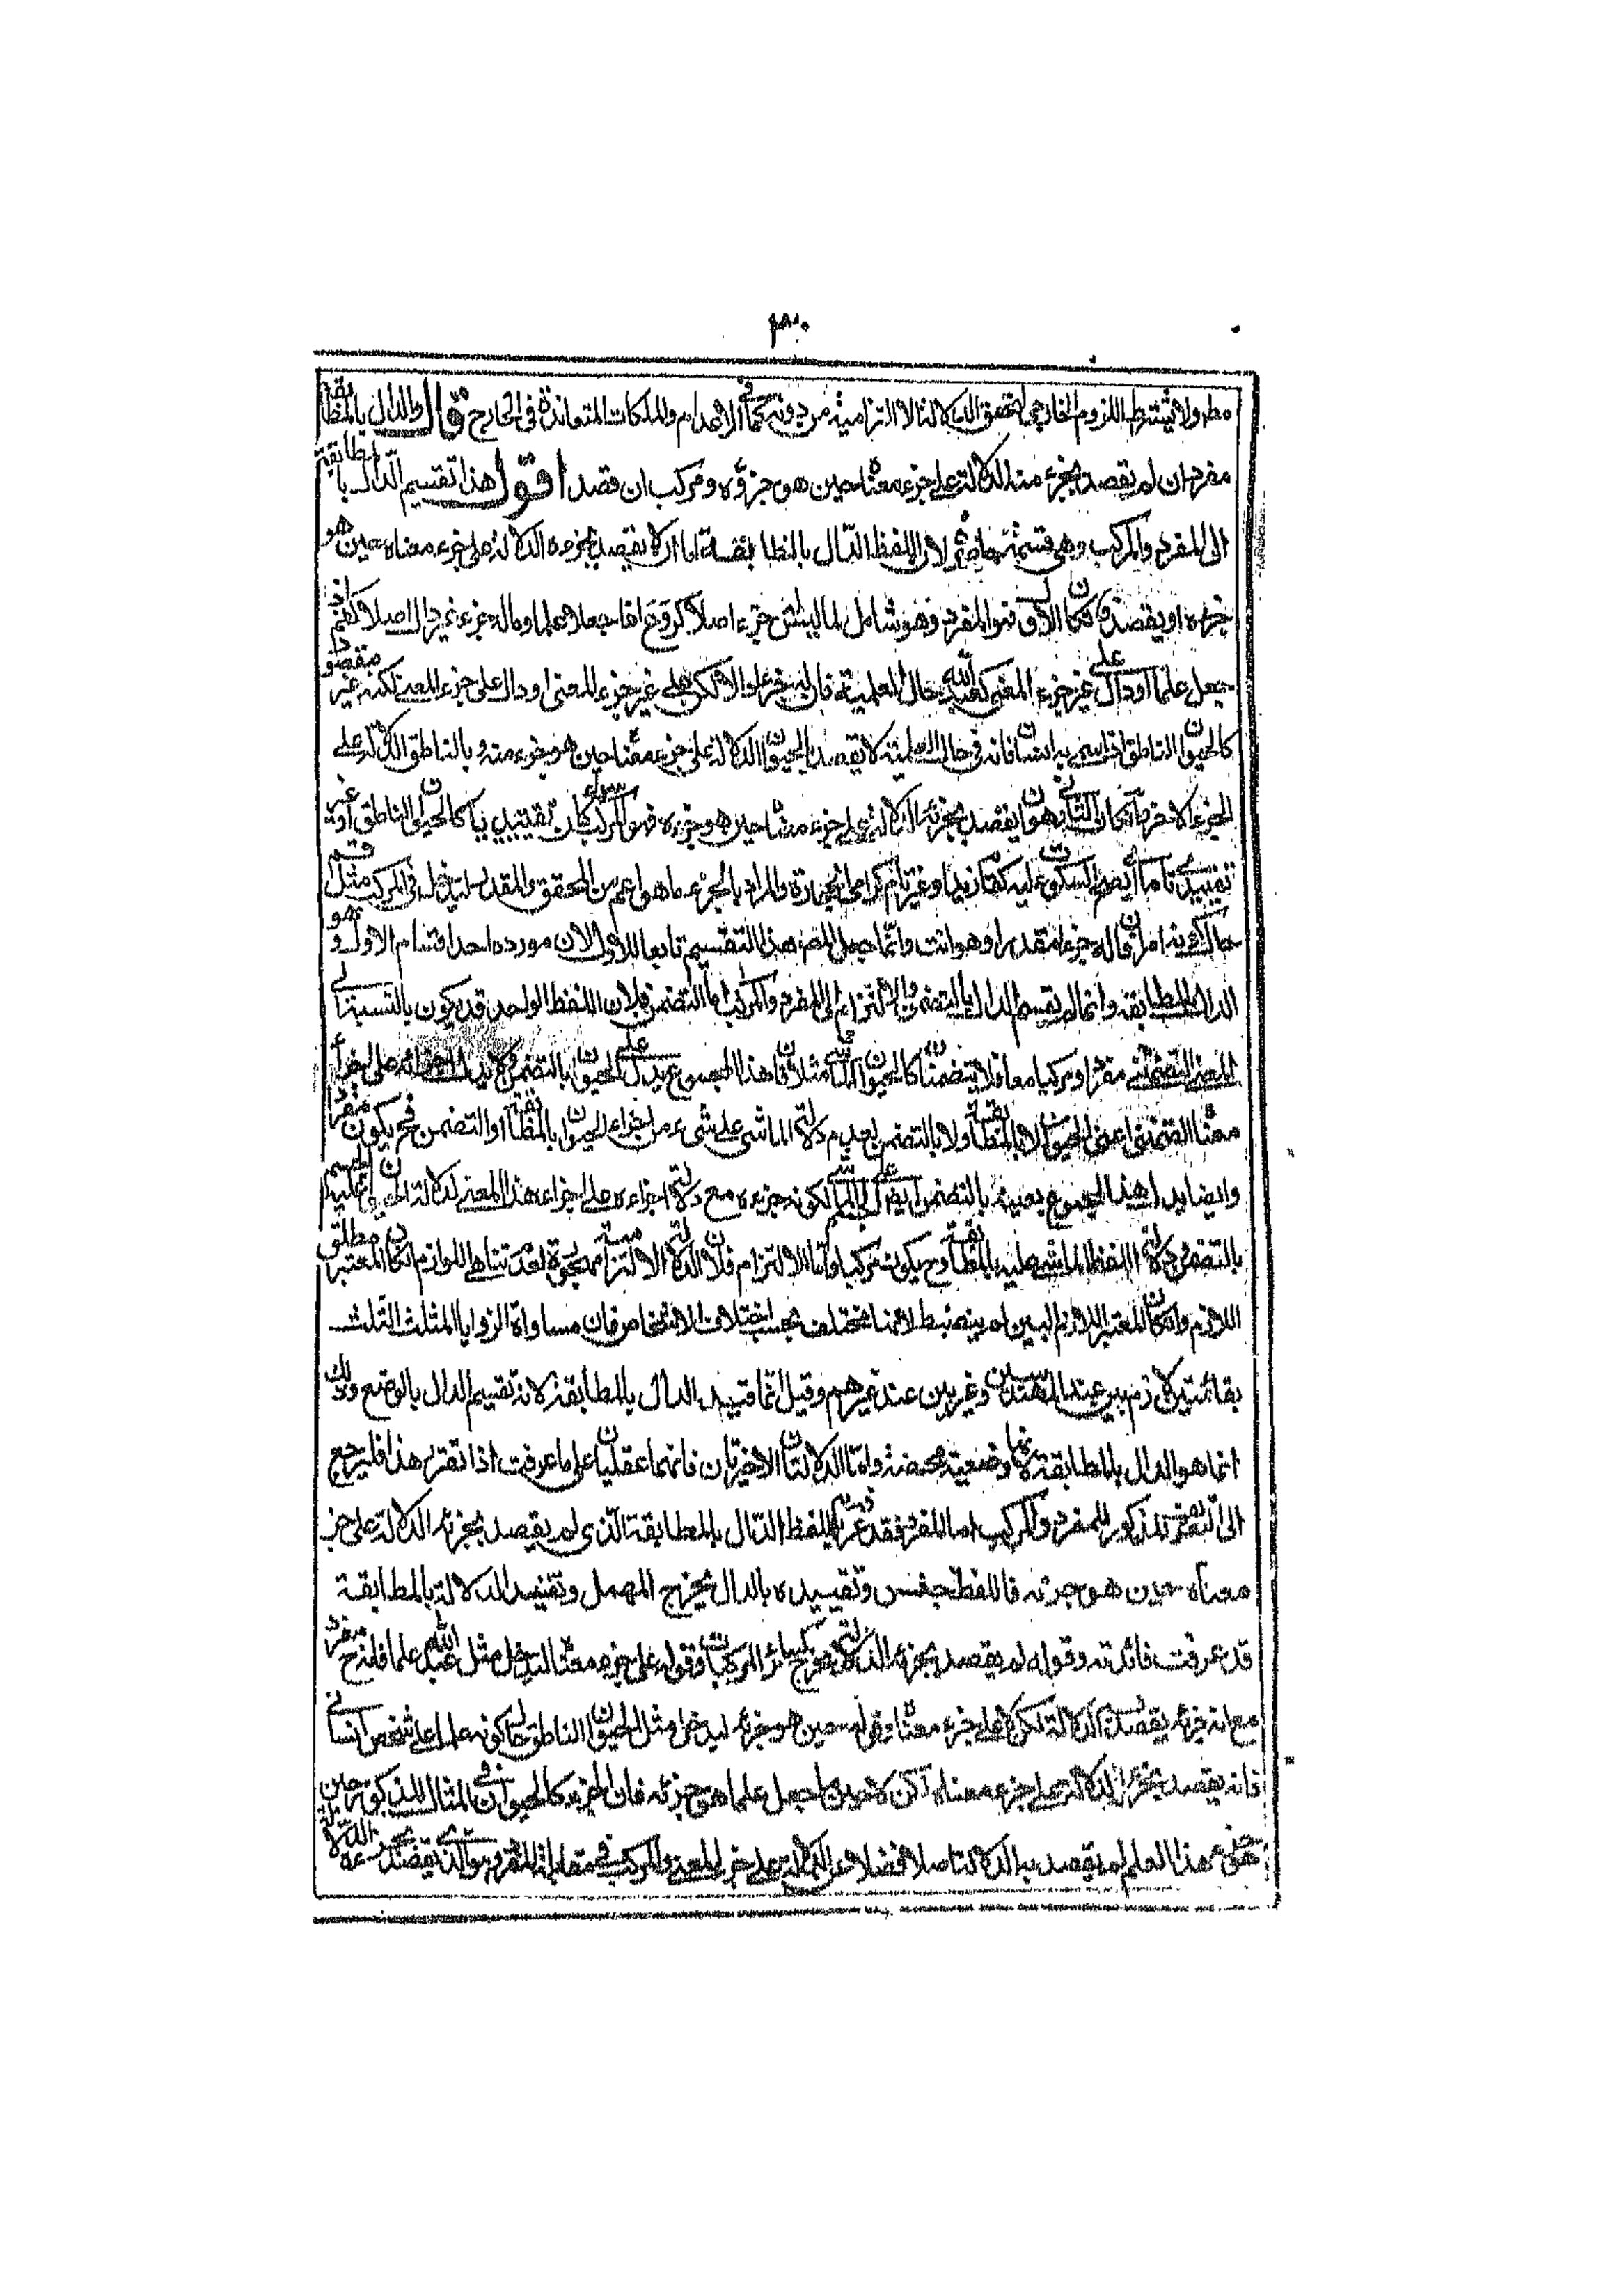 ٣٠
ولا يشترط اللزوم الخارجي لتحقق الدلالة الالتزامية من دونه كما في الاعدام والملكات المتعاندة في الخارج قال والدال بالمطابقة
مفرد ان لم يقصد بجزء منه الدلالة على جزء معناه حين هو جزؤه ومركب ان قصد اقول هذا تقسيم الدال بالمطابقة
الى المفرد والمركب وهي قسمة حاصرة لان اللفظ الدال بالمطابقة اما ان لا يقصد بجزءه الدلالة على جزء معناه حين هو
جزءه او يقصد فان كان الاول فهو المفرد وهو شامل لما ليس له جزء اصلا علما وماله جزء غير دال اصلا كزيد اذا
جعل علما او دال على غير جزء المعنى كعبد الله حال العلمية على غير جزء المعنى او دال على جزء المعنى لكنه غير مقصود
كالحيوان الناطق اذا سمي به انسان فانه في حال العلمية لا يقصد بالحيوان الدلالة على جزء معناه حين هو جزء منه و بالناطق الدلالة على
الجزء الاخر وان كان الثاني وهو ان يقصد بجزئه الدلالة على جزء معناه حين هو جزءه فهو المركب سواء كان تقييديا كالحيوان الناطق او غير
تقييدي تاما يصح السكوت عليه وغير تام كرامي الحجارة والمراد بالجزء ما هو اعم من المحقق والمقدر ليدخل في المركب مثل قم
فان له جزءا مقدرا وهو انت وانما جعل المص هذا التقسيم تابعا للاول لان مورده احد اقسام الاول وهو
الدال بالمطابقة وانما لم يقسم الدال بالتضمن والالتزام الى المفرد والمركب اما التضمن فلان اللفظ الواحد قد يكون بالنسبة الى
المعنى التضمني مفردا ومركبا معا كالحيوان الماشي مثلا فان هذا المجموع يدل على الحيوان بالتضمن ولا يدل على اجزاء
معناه التضمني اعني الحيوان لا بالمطابقة ولا بالتضمن لعدم دلالة الماشي على شيء من اجزاء الحيوان بالمطابقة او التضمن فح يكون مفردا
وايضا يدل هذا المجموع بعينه بالتضمن على الماشي لكونه جزءه مع دلالة اجزاءه على اجزاء هذا المعنى لدلالة
بالتضمن ودلالة اللفظ الماشي عليه بالمطابقة وح يكون مركبا واما الالتزام فلان الدلالة الالتزامية مهجورة لعدم تناهي اللوازم ان كان المعتبر مطلق
اللازم وان كان المعتبر اللازم البين لم ينضبط لانه مختلف بحسب اختلاف الاشخاص فان مساواة الزوايا المثلث الثلث
بقائمتين لازم بين عند المهندسين وغير بين عند غيرهم وقيل انما قيد الدال بالمطابقة لانه تقسيم الدال بالوضع وذلك
انما هو الدال بالمطابقة لانها وضعية محضة واما الدلالتان الاخريان فانهما عقليان على ما عرفت اذا تقرر هذا فليرجع
الى التعريف المذكور للمفرد والمركب اما المفرد فقد عرف بانه اللفظ الدال بالمطابقة الذي لم يقصد بجزئه الدلالة على جزء
معناه حين هو جزئه فاللفظ جنس وتقييده بالدال يخرج المهمل وتقييد الدلالة بالمطابقة
قد عرفت فائدته وقوله لم يقصد بجزئه الدلالة يخرج سائر المركبات وقوله على جزء معناه ليدخل مثل عبد الله علما فانه ح مفرد
مع انه جزئه يقصد الدلالة لكن لا على جزء معناه وقوله حين هو جزئه ليدخل مثل الحيوان الناطق حال كونه علما على شخص انساني
فانه يقصد بجزئه الدلالة على جزء معناه لكن لا حين جعل علما هو جزئه فان الجزء كالحيوان في المثال المذكور حين
هذا العلم لم يقصد به الدلالة اصلا فضلا عن الدلالة على جزء المعنى والمركب في مقابلة المفرد وهو الذي يقصد بجزئه الدلالة